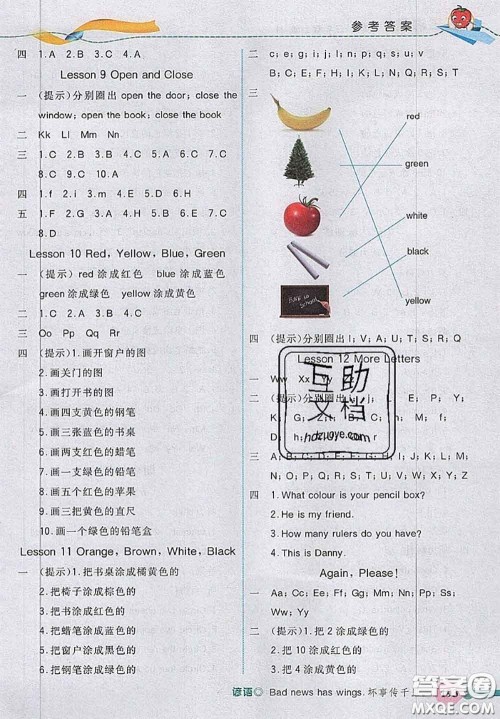 参考答案
四 1.A 2.B 3.C 4.A
Lesson 9 Open and Close
一 (提示)分别圈出 open the door; close the
window; open the book; close the book
二 Kk Ll Mm Nn
三 1.C 2.B 3.B 4.C 5.A 6.B 7.C
8.C 9.C 10.A
四 1.f 2.i 3.m 4.E 5.g
五 1.F 2.A 3.E 4.B 5.G 6.H 7.C
8.D
Lesson 10 Red, Yellow, Blue, Green
一 (提示) red 涂成红色 blue 涂成蓝色
green 涂成绿色 yellow 涂成黄色
二 1.A 2.B 3.C 4.C
三 Oo Pp Qq Rr
四 (提示)1.画开窗户的图
2.画关门的图
3.画打开书的图
4.画四支黄色的钢笔
5.画三张蓝色的书桌
6.画两支红色的蜡笔
7.画一支绿色的铅笔
8.画五个红色的苹果
9.画三把黄色的直尺
10.画一个绿色的铅笔盒
Lesson 11 Orange, Brown, White, Black
一 (提示)1.把书桌涂成橘黄色的
2.把椅子涂成棕色的
3.把书涂成红色的
4.把蜡笔涂成蓝色的
5.把窗户涂成黑色的
6.把钢笔涂成绿色的
二 c; e; g; i; k; m; o; q; s
B; D; F; H; J; L; N; P; R; T
三
red
green
white
black
yellow
四 (提示)分别圈出 I; V; A; U; S; T; R; Q
Lesson 12 More Letters
一 Ww Xx Yy Z
二 (提示)分别圈出 J; L; E; P; M; f
G; B; D; C; h; r
三 A; B; D; E; G; I; J; K; M; N; P; Q;
S; T; V; W; Y; Z
四 1. What colour is your pencil box?
2. He is my friend.
3. How many rulers do you have?
4. This is Danny.
Again, Please!
一 Aa; Cc; Ee; Gg; Ii; Kk; Mm; Oo; Qq; Ss; Uu;
Ww; Yy
二 (提示)1.把 2 涂成绿色的
2.把 10 涂成红色的
互助
文档
hdzuoye.com
谚语 Bad news has wings. 坏事传千
答案圈
MXQE.COM